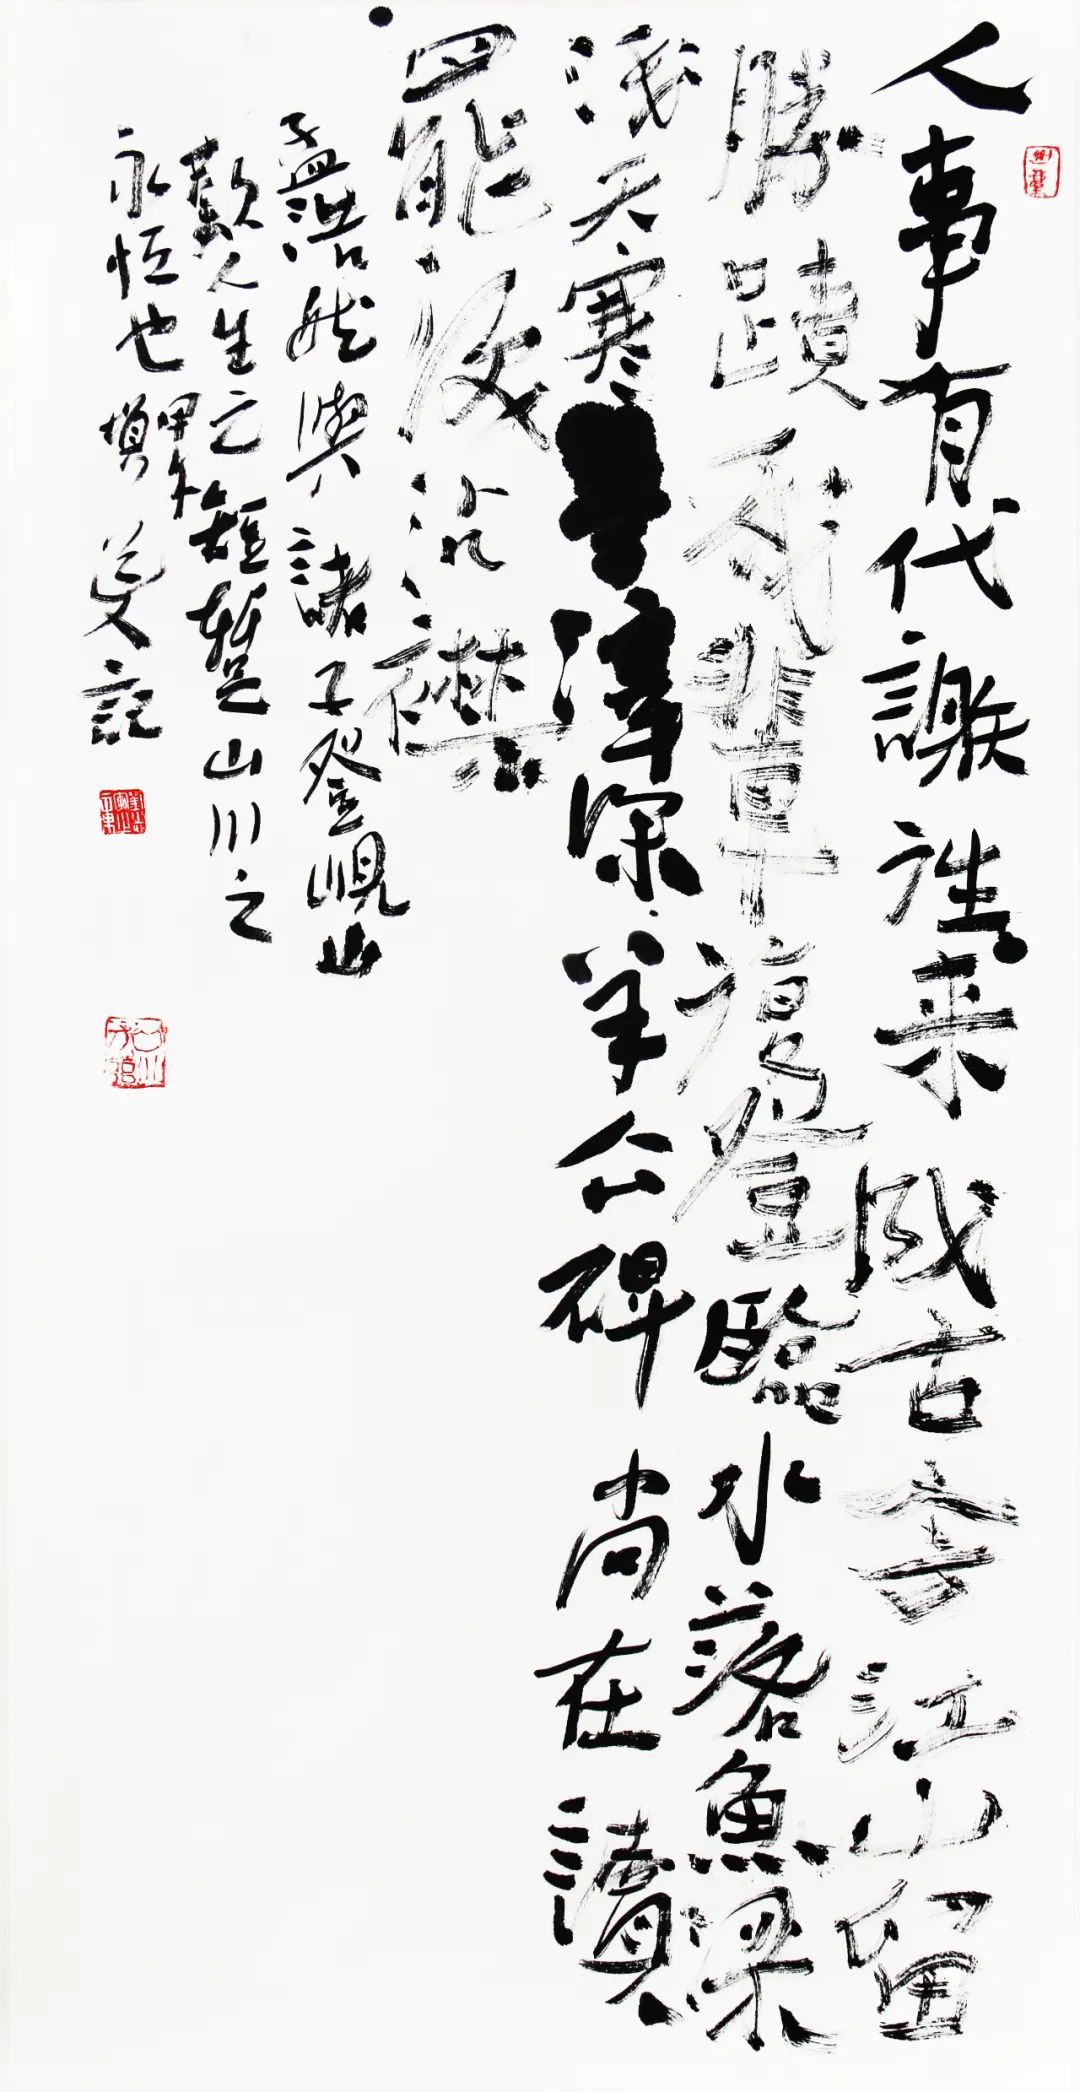 人事有代謝往来成古今江山留
勝蹟我輩復登臨水落魚梁
淺天寒夢澤深羊公碑尚在讀
罷淚沾襟
孟浩然與諸子登峴山
歎人生之短暫山川之
永恒也甲午記